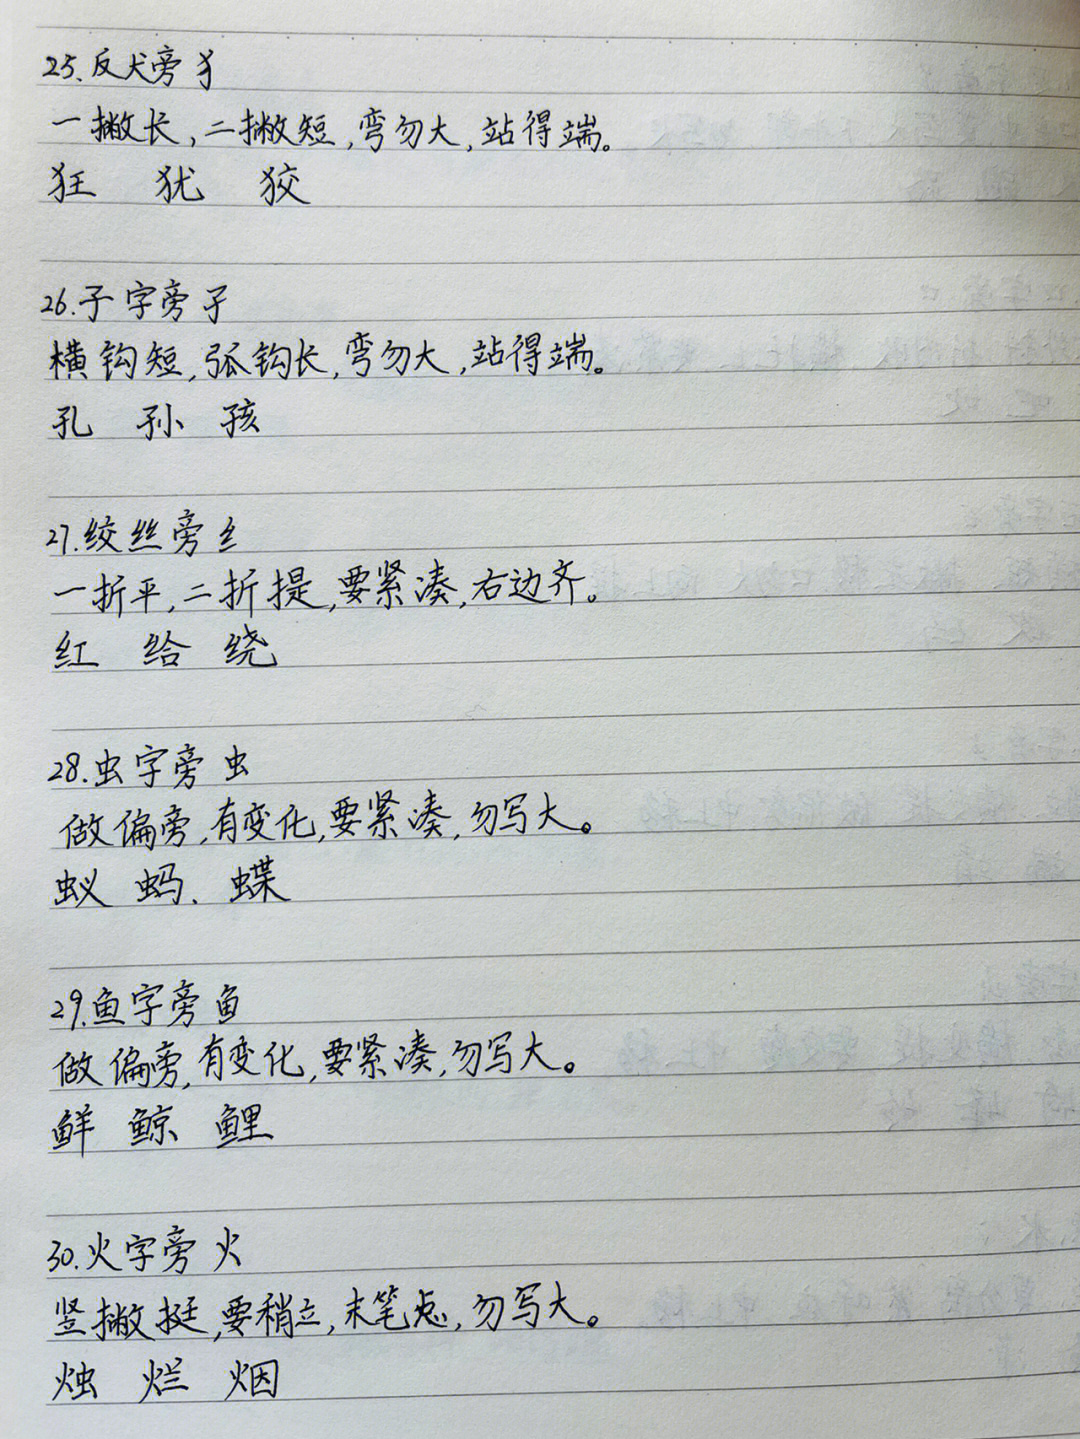 25.反犬旁 犭
一撇长,二撇短,弯勿大,站得端。
狂 犹 狡
26.子字旁 孑
横钩短,弧钩长,弯勿大,站得端。
孔 孙 孩
27.绞丝旁 纟
一折平,二折提,要紧凑,右边齐。
红 给 绕
28.虫字旁 虫
做偏旁,有变化,要紧凑,勿写大。
蚁 蚂、蝶
29.鱼字旁 鱼
做偏旁,有变化,要紧凑,勿写大。
鲜 鲸 鲤
30.火字旁 火
竖撇挺,要稍立,末笔点,勿写大。
烛 烂 烟